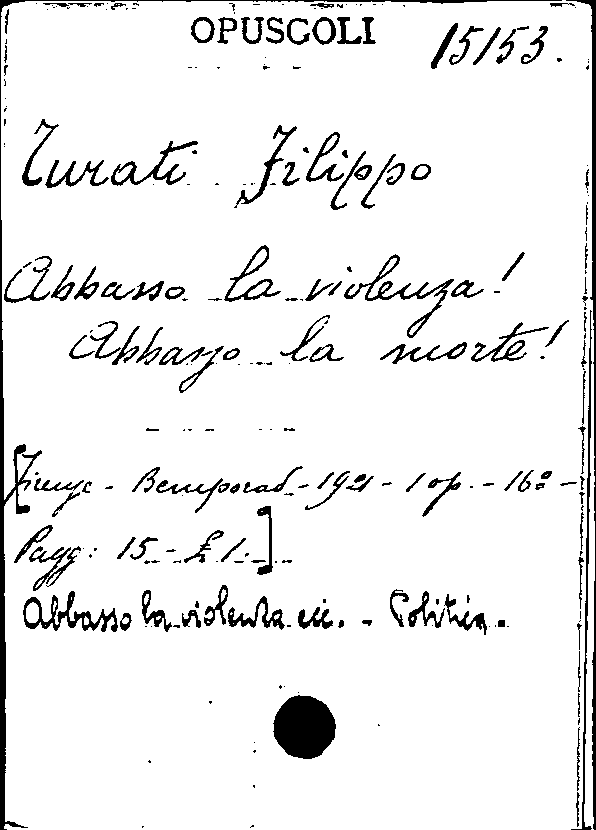 OPUSCOLI 15153.
Turati Filippo
Abbasso la violenza!
Abbasso la morte!
[Firenze - Bemporad - 1921 - 1 op. - 16º -
Pagg: 15 - £ 1.]
Abbasso la violenza ecc. - Politica.